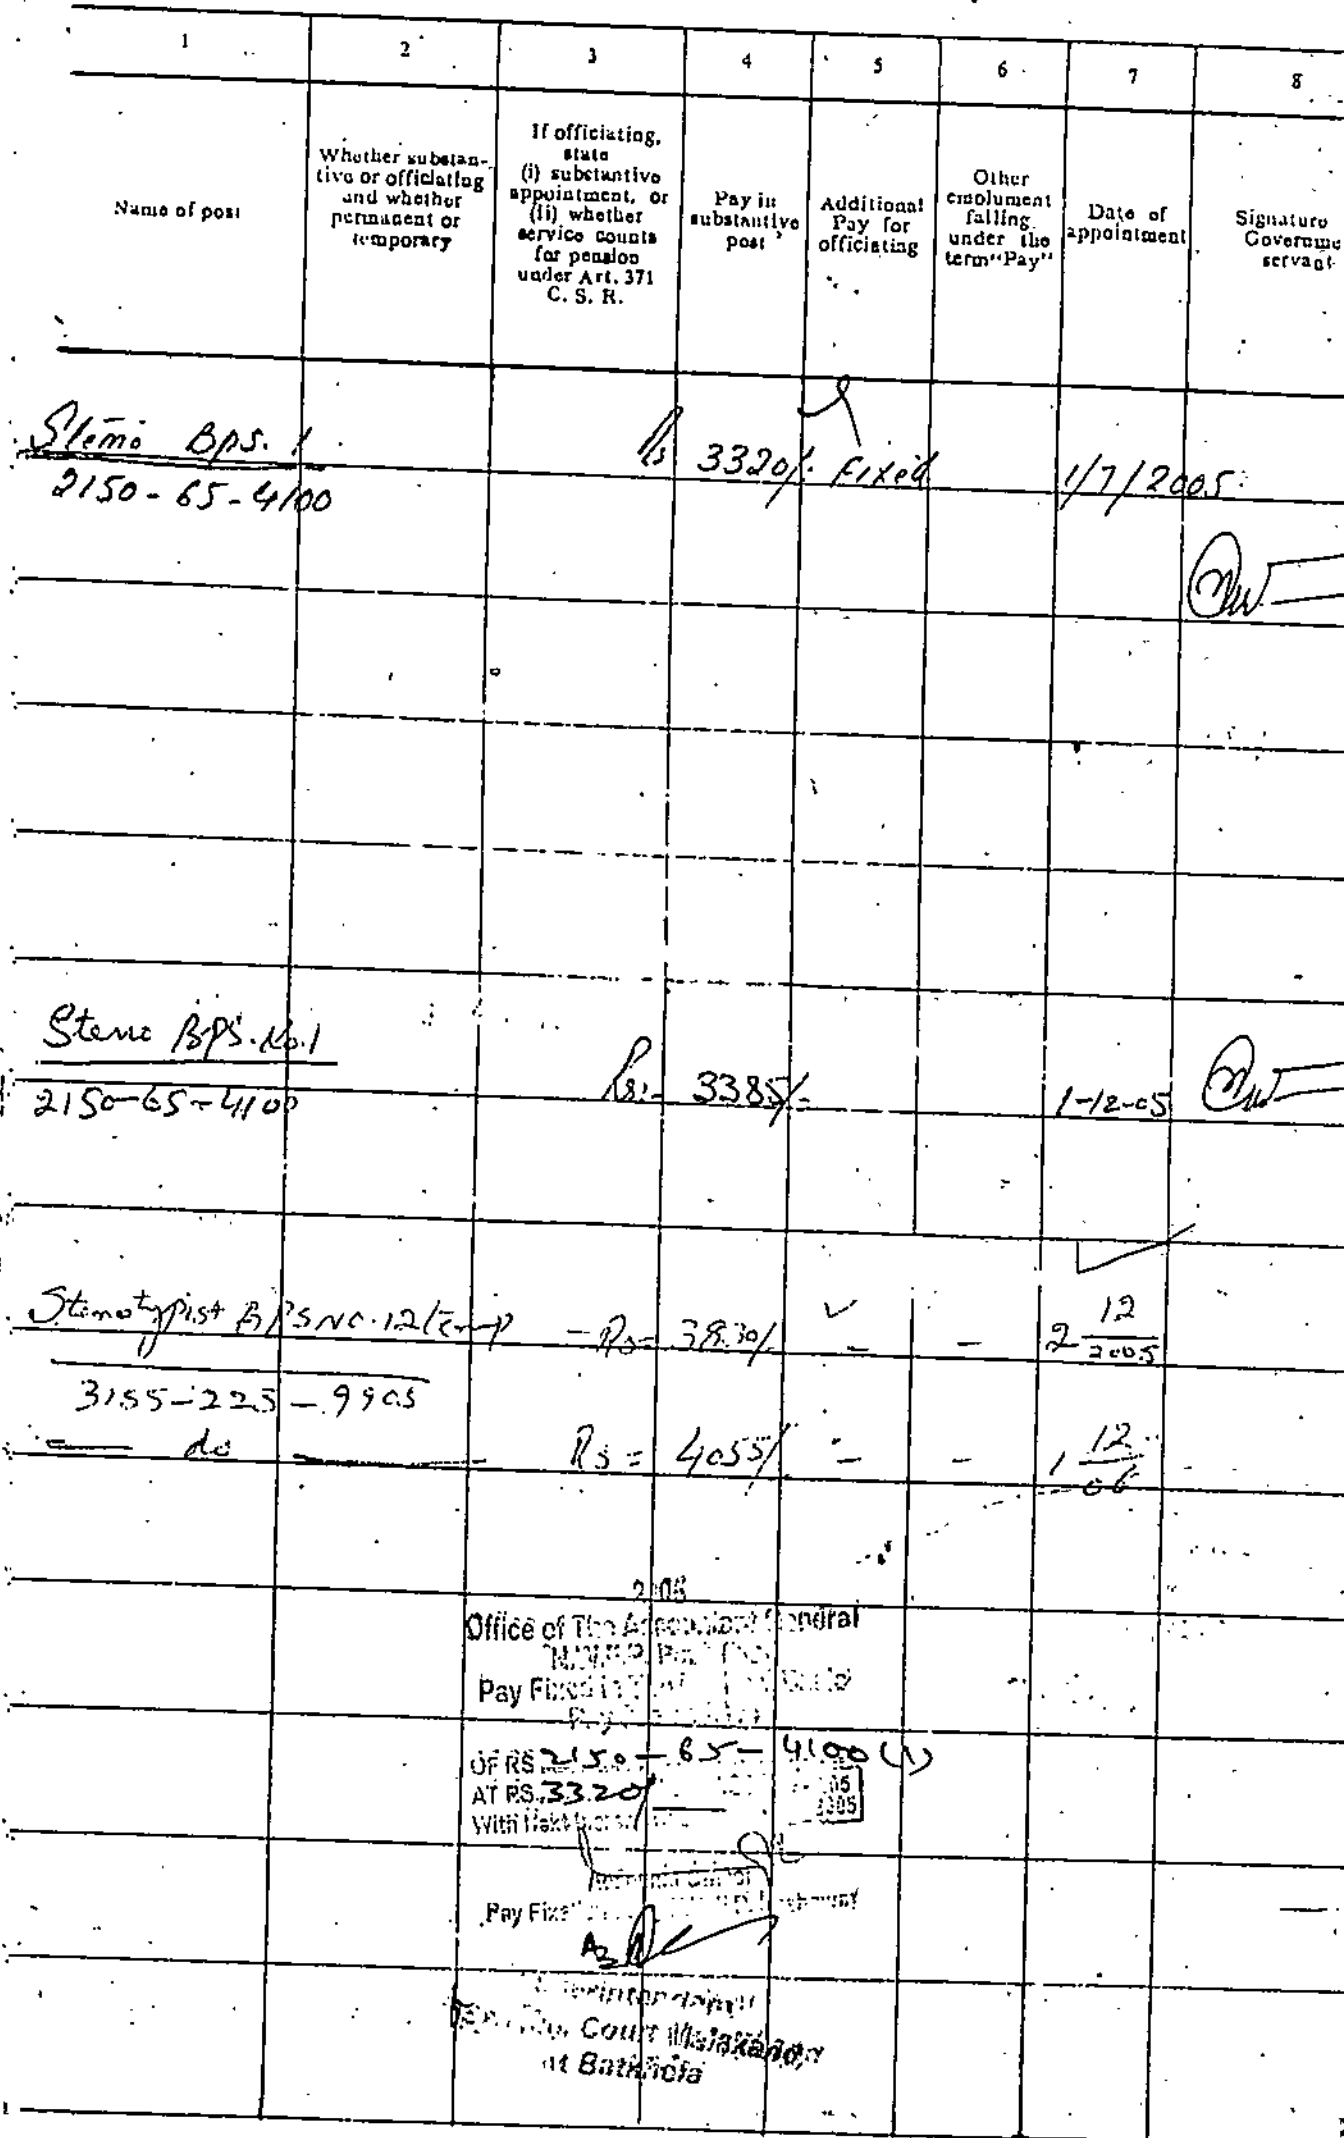 1 2 3 4 5 6 7 8
Name of post
Whether substan-
tive or officiating
and whether
permanent or
temporary
If officiating,
state
(i) substantive
appointment, or
(ii) whether
service counts
for pension
under Art. 371
C. S. R.
Pay in
substantive
post
Additional
Pay for
officiating
Other
emolument
falling
under the
term "Pay"
Date of
appointment
Signature
Governme
servant
Steno BPS. 1 Rs 3320/- Fixed 1/7/2005
2150-65-4100
Steno BPS. No. 1 Rs:- 3385/- 1-12-05
2150-65-4100
Stenotypist BPS NO. 12/Temp - Rs= 3830/ - - 2 12/2005
3155-225-9905
do Rs = 4055/ - - 1 12/06
Office of The Accountant General
Pay Fixed
OF RS 2150-65-4100 (1)
AT RS. 3320/
With
Pay
Court Malakand,
at Batkhela